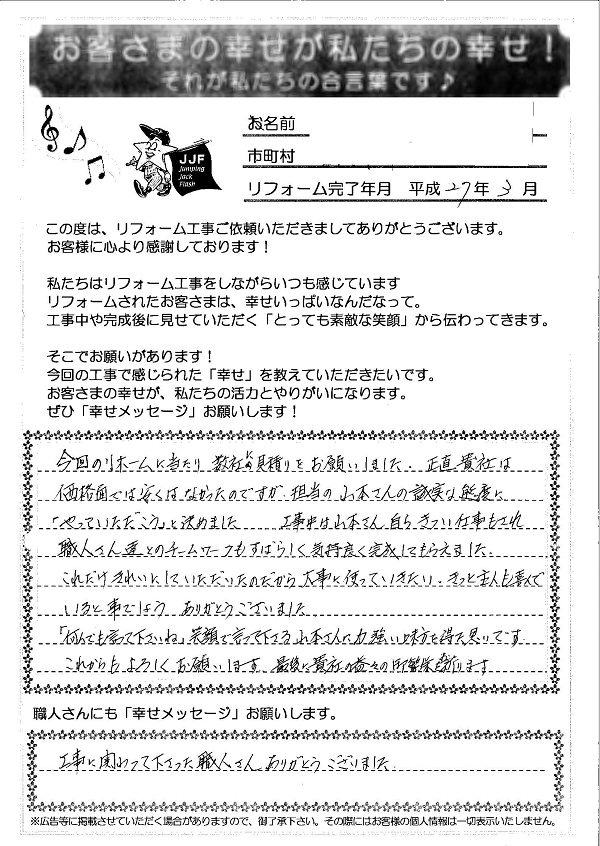 お客さまの幸せが私たちの幸せ!
それが私たちの合言葉です♪
JJF
Jumping
Jack
Flash
お名前
市町村
リフォーム完了年月 平成27年3月
この度は、リフォーム工事ご依頼いただきましてありがとうございます。
お客様に心より感謝しております!
私たちはリフォーム工事をしながらいつも感じています
リフォームされたお客さまは、幸せいっぱいなんだなって。
工事中や完成後に見せていただく「とっても素敵な笑顔」から伝わってきます。
そこでお願いがあります!
今回の工事で感じられた「幸せ」を教えていただきたいです。
お客さまの幸せが、私たちの活力とやりがいになります。
ぜひ「幸せメッセージ」お願いします!
今回のリホームに当たり数社に見積りをお願いしました。正直貴社は
価格面では安くはなかったのですが担当の山本さんの誠実な態度に
「やっていただこう」と決めました 工事中は山本さん自らきつい仕事もされ
職人さん達とのチームワークもすばらしく気持良く完成してもらえました。
これだけきれいにしていただいたのだから大事に使っていきたい。きっと主人も喜んで
いると事でしょう ありがとうございました
「何んでも言って下さいね」笑顔で言って下さる山本さんに力強い味方を得た思いです
これからもよろしくお願いします 最後に貴社の益々の御繁栄祈ります
職人さんにも「幸せメッセージ」お願いします。
工事に関わって下さった職人さんありがとうございました
※広告等に掲載させていただく場合がありますので、御了承下さい。その際にはお客様の個人情報は一切表示いたしません。